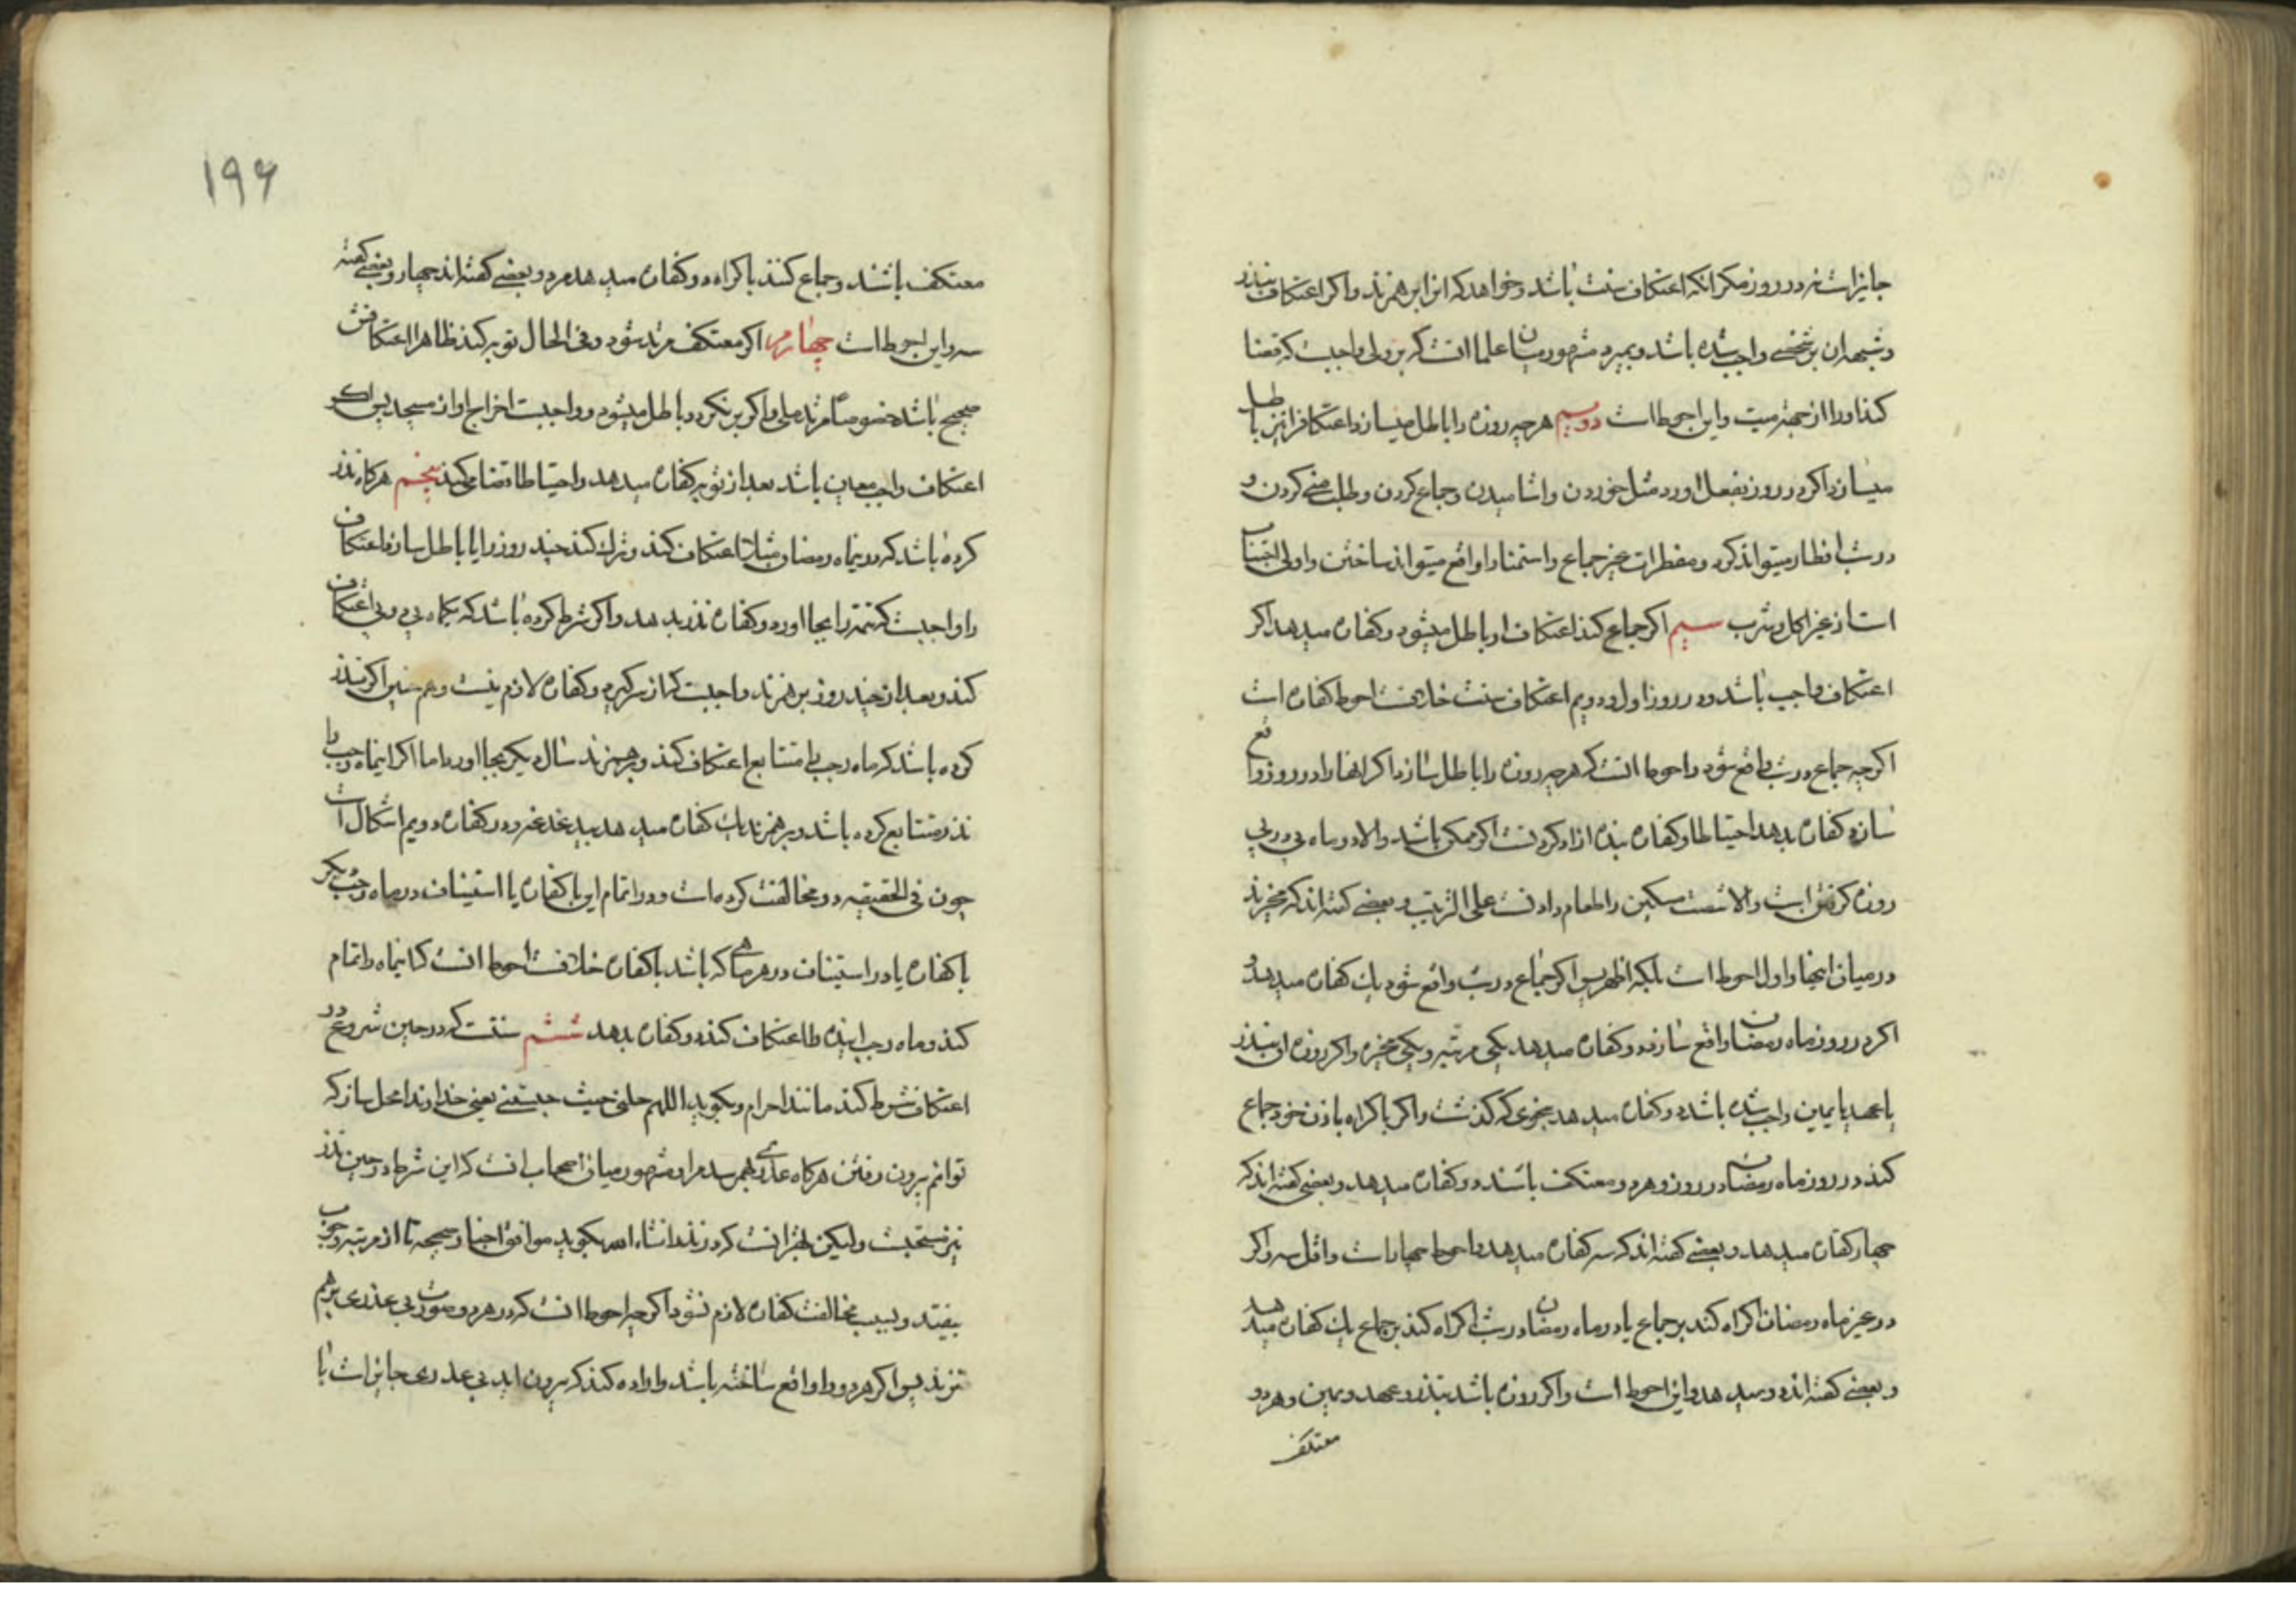 جایز است نه در روز مگر آنکه اعتکاف سنت باشد و خواهد که از این همزند و اگر اعتکاف بنذر
و شبهه آن بر شخصی واجب شده باشد و بمیرد مشهور میان علما انست که بر ولی واجبست که قضا
کند او را از جهة میت و این احوط است دویم هر چه روزه را باطل میسازد اعتکاف را نیز باطل
میسازد اگر در روز بفعل آورد مثل خوردن و اشامیدن و جماع کردن و طلب منی کردن و
در شب افطار میتواند کرد و مفطرات غیر جماع و استمنا را واقع میتواند ساختن و اولی اجتناب
است از غیر اکل و شرب سیم اگر جماع کند اعتکاف او باطل میشود و کفاره میدهد اگر
اعتکاف واجب باشد و در روز اول و دویم اعتکاف سنت خلافست احوط کفاره است
اگر چه جماع در شب واقع شود و احوط انست که هر چه روزه را باطل سازد اگر انها را در روز واقع
سازد کفاره بدهد احتیاطا و کفاره بنده ازاد کردنست اگر ممکن باشد و الا دو ماه پی در پی
روزه گرفتن است و الا شصت مسکین را طعام دادنست علی الترتیب و بعضی گفته اند که مخیرند
در میان اینها و اول احوط است بلکه اظهر پس اگر جماع در شب واقع شود یك کفاره میدهد و
اگر در روز ماه رمضان واقع سازد دو کفاره میدهد یکی مرتبه و یکی مخیره و اگر روزه او بنذر
یا عهد یا یمین واجب شده باشد دو کفاره میدهد بنحوی که گذشت و اگر باکراه با زن خود جماع
کند در روز ماه رمضان در روز و هر دو معتکف باشند دو کفاره میدهد و بعضی گفته اند که
چهار کفاره میدهد و بعضی گفته اند که سه کفاره میدهد و احوط چهار است و اقل سه و اگر
در غیر ماه رمضان اکراه کند بر جماع یا در ماه رمضان در شب اکراه کند بر جماع یك کفاره میدهد
و بعضی گفته اند دو میدهد و این احوط است و اگر روزه باشد بنذر و عهد و یمین و هر دو
معتکف
۱۹۶
معتکف باشند و جماع کنند باکراه دو کفاره میدهد مرد و بعضی گفته اند چهار و بعضی گفته
سه و این احوط است چهارم اگر معتکف مرتد شود و فی الحال توبه کند ظاهرا اعتکافش
صحیح باشد خصوصا مرتد ملی و اگر برنگردد باطل میشود و واجبست اخراج او از مسجد پس اگر
اعتکاف واجب معین باشد بعد از توبه کفاره میدهد و احتیاطا قضا می کند پنجم هرگاه نذر
کرده باشد که در نماه رمضان مثلا اعتکاف کند و ترك کند چند روز را یا باطل سازد اعتکاف
را واجبست که تتمه را بجا اورد و کفاره نذر بدهد و اگر شرط کرده باشد که یکماه پی در پی اعتکاف
کند و بعد از چند روز بر همزند واجبست که از سر گیرد و کفاره لازم نیست و همچنین اگر نذر
کرده باشد که ماه رجب را متتابع اعتکاف کند و برهمزند سال دیگر بجا اورد اما اگر اینماه رجب را
نذر متتابع کرده باشد و برهمزند یك کفاره میدهد بیدغدغه و در کفاره دویم اشکال است
چون فی الحقیقه دو مخالفت کرده است و در اتمام این با کفاره یا استیناف در ماه رجب دیگر
با کفاره یا در استیناف در هر ماهی که باشد با کفاره خلافست احوط انست که اینماه را تمام
کند و ماه رجب اینده را اعتکاف کند و کفاره بدهد ششم سنت است که در حین شروع در
اعتکاف شرط کند مانند احرام و بگوید اللهم حلنی حیث حبستنی یعنی خداوندا محل ساز که
توانم بیرون رفتن هرگاه عذری بهم رسد مرا و مشهور میان اصحاب انست که این شرط در حین نذر
نیز مستحبست و لیکن بهتر انست که در نذر انشاء الله بگوید موافق اخبار صحیحه تا از مرتبه وجوب
بیفتد و بسبب مخالفت کفاره لازم نشود اگر چه احوط انست که در هر دو صورت بی عذری برهم
نزند پس اگر هر دو را واقع ساخته باشد و اراده کند که بیرون اید بی عذری جایز است با